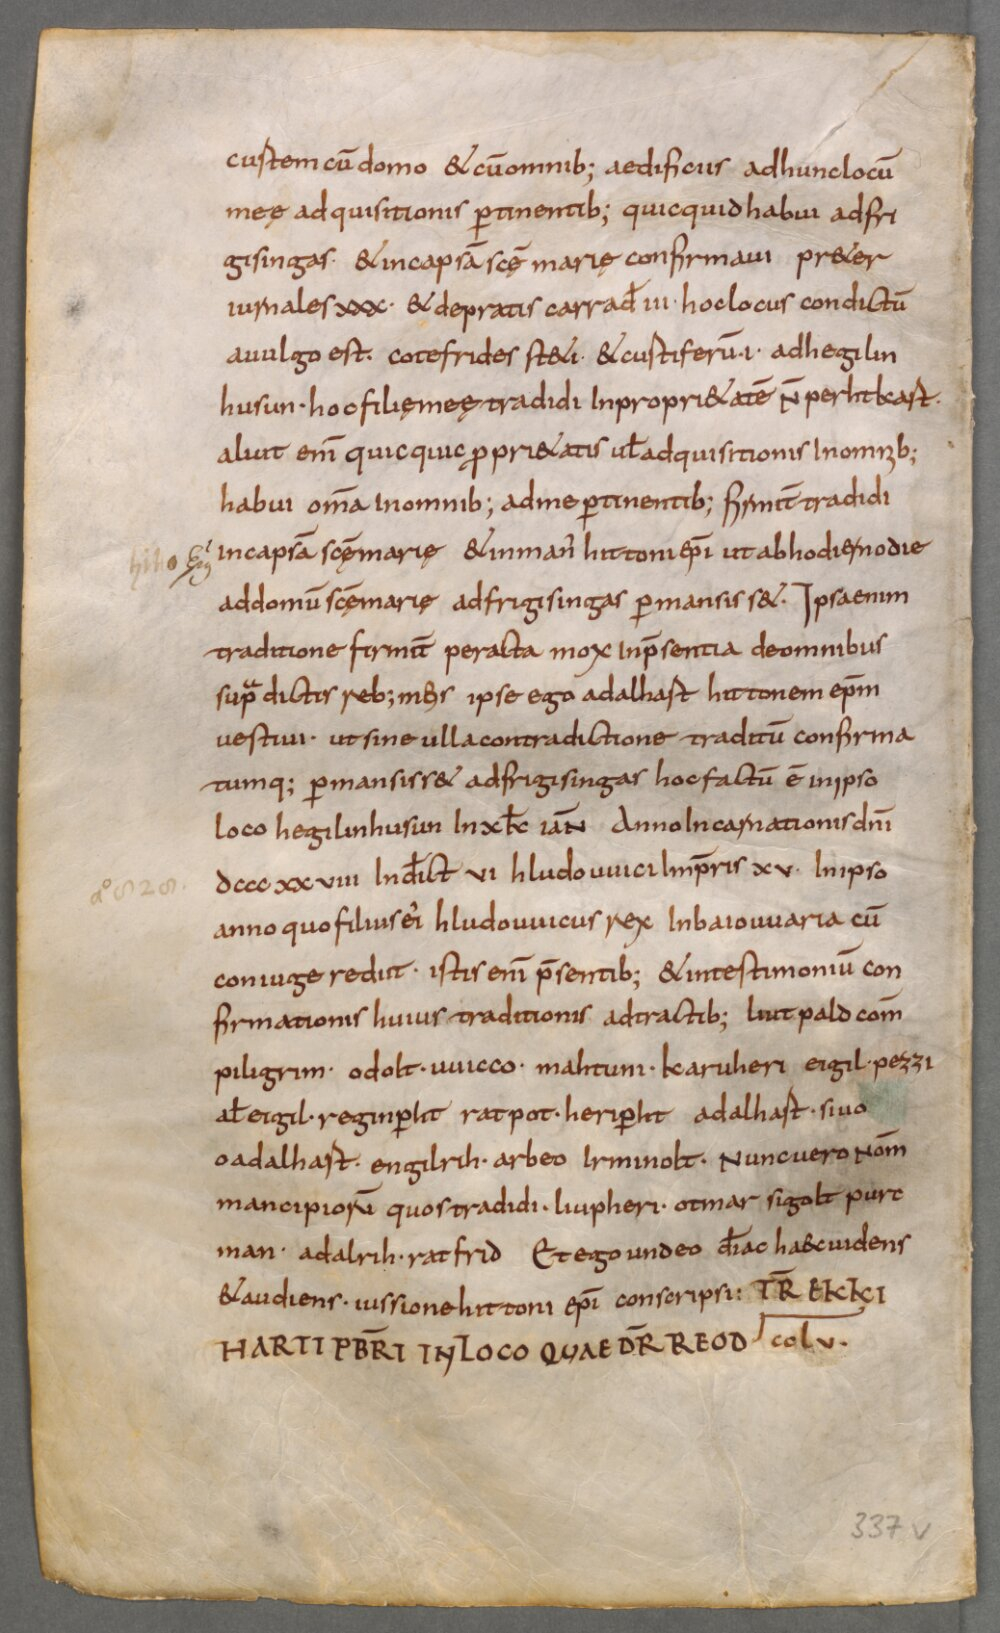 custem cū domo & cū omnib; aedificiis ad hunc locū
meę adquisitionis ꝑtinentib; quicquid habui ad fri
gisingas· & in capsā scę̄ marię confirmaui pr&er
iurnales xxx· & de pratis carrad̄ iii· hoc locus condictū
a uulgo est· cotefrides st&i· & custiferū·i· ad hegilin
husun· hoc filię meę tradidi In propri&atē N̄ perhtkast·
aliut eni̅ quicquic ꝓpri&atis ul̄ adquisitionis In omnib;
habui om̄a In omnib; ad me ꝑtinentib; firmit̄ tradidi
hitto In capsā scę̄ marię & in man̄ hittoni ep̄i ut ab hodierno die
ad domū scę̄ marię ad frigisingas ꝑmansiss&· Ipsa enim
traditione firmit̄ peracta mox In p̄sentia de omnibus
supᷓdictis reb; meis ipse ego adalhast hittonem ep̄m
uestiui· ut sine ulla contradictione traditū confirma
tumq; ꝑmansiss& ad frigisingas hoc factū ē in ipso
loco hegilinhusun In x kł iaN̄ Anno Incarnationis dn̄i
a° 828· dcccxxviii Ind̄ict vi hludouuici Imp̄ris xv· In ipso
anno quo filius ei̅ hludouuicus rex In baiouuaria cū
coniuge rediit· istis eni̅ p̄sentib; & in testimoniū con
firmationis huius traditionis adtractib; liutpald com̄
piligrim· odolt· uuicco· mahtuni· karuheri eigil· pezzi
al̄ eigil· reginꝑht ratpot· heriꝑht adalhast· siuo
oadalhast· engilrih· arbeo Irminolt· Nunc uero Nom̄
mancipiorū quos tradidi· liupheri· otmar sigolt purc
man· adalrih· ratfrid Et ego undeo d̄iac haec uidens
& audiens· iussione hittoni ep̄i conscripsi: TR̄ EKKI
HARTI PBR̄I IN LOCO QUAE DR̄ REOD col v·
337 v